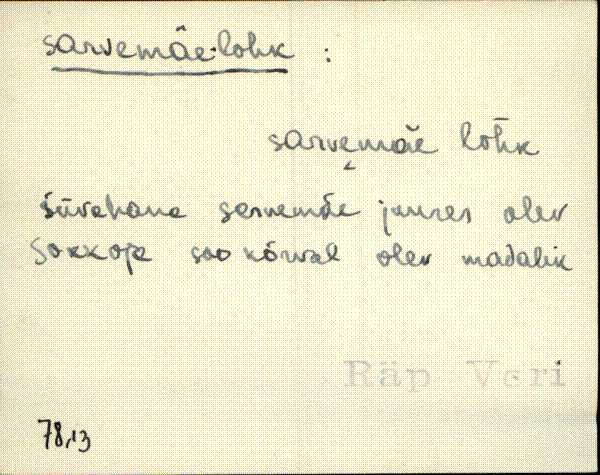 sarvemäe-lohk :
sarvemäe lohk
süvahane sarvemäe juures olev
Sokkoja soo kõrval olev madalik
Räp Veri
78,13